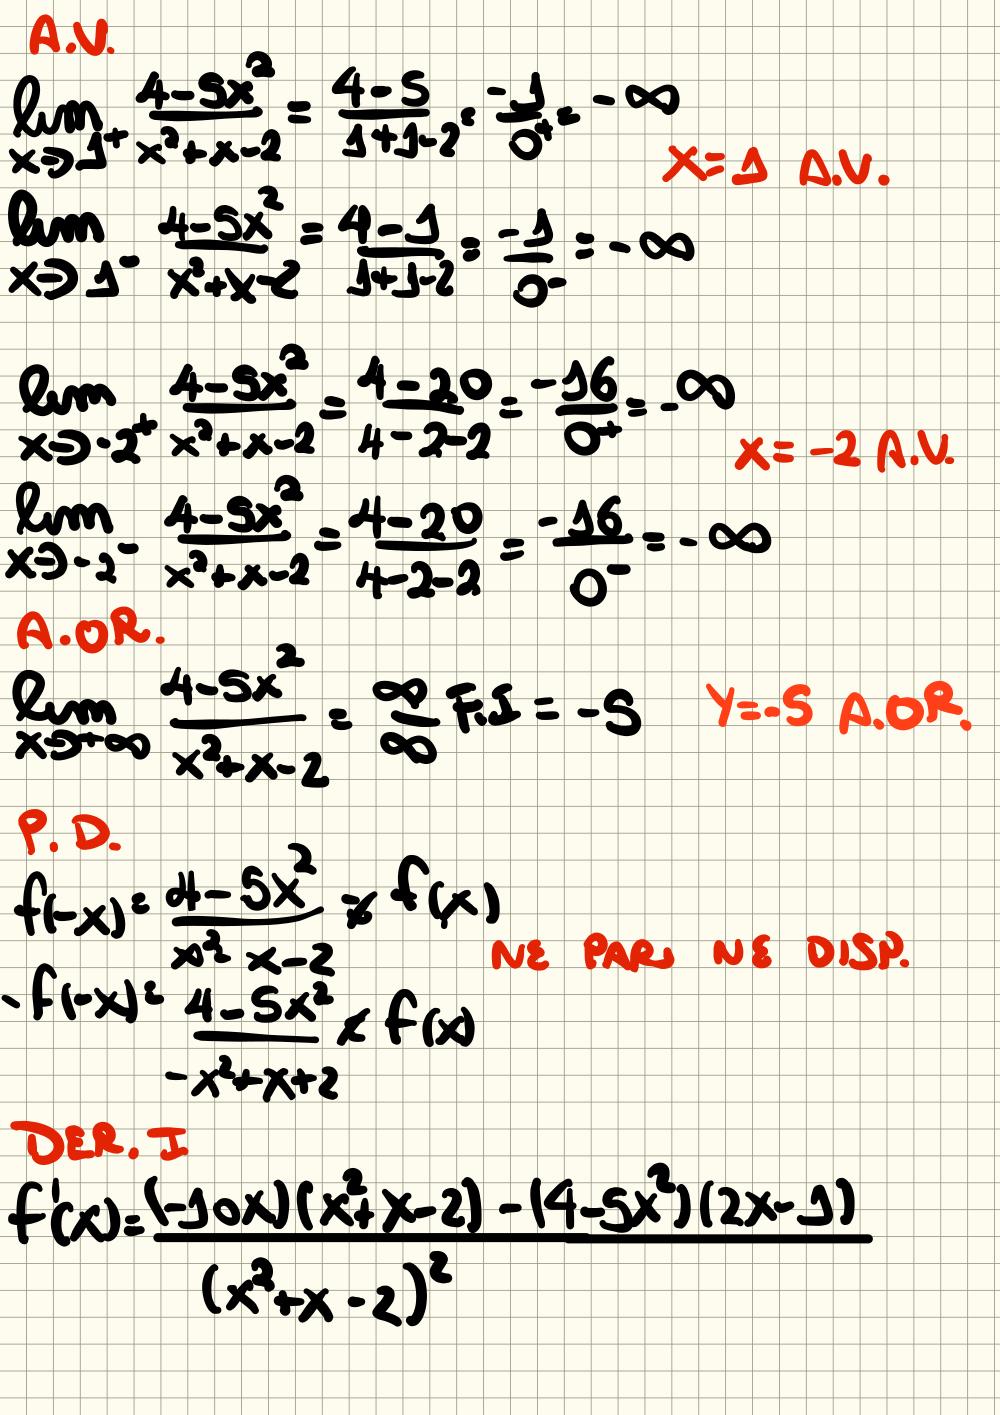 A.V.
lim x→1⁺ (4-5x²)/(x²+x-2) = (4-5)/(1+1-2) = -1/0⁺ = -∞
x=1 A.V.
lim x→1⁻ (4-5x²)/(x²+x-2) = (4-1)/(1+1-2) = -1/0⁻ = -∞
lim x→-2⁺ (4-5x²)/(x²+x-2) = (4-20)/(4-2-2) = -16/0⁺ = -∞
x=-2 A.V.
lim x→-2⁻ (4-5x²)/(x²+x-2) = (4-20)/(4-2-2) = -16/0⁻ = -∞
A.OR.
lim x→+∞ (4-5x²)/(x²+x-2) = ∞/∞ F.I = -5 Y=-5 A.OR.
P.D.
f(-x) = (4-5x²)/(x²-x-2) ≠ f(x)
NE PARI NE DISP.
-f(-x) = (4-5x²)/(-x²+x+2) ≠ f(x)
DER. I
f'(x) = ((-10x)(x²+x-2) - (4-5x²)(2x-1))/(x²+x-2)²